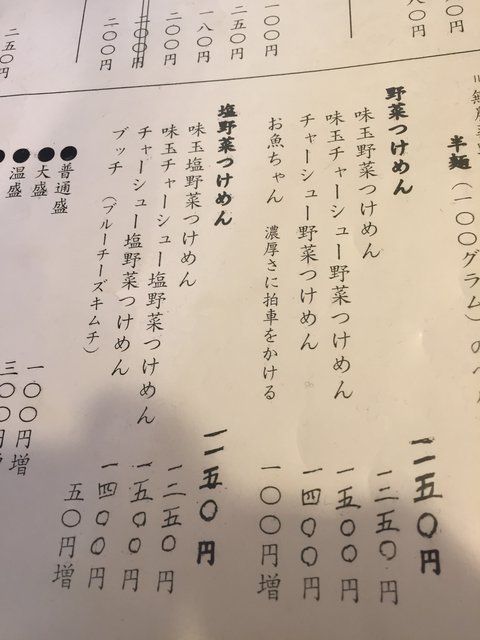 〇〇円
一〇〇円
二五〇円
一八〇円
二〇〇円
二〇〇円
二五〇円
半麺（一〇〇グラム）の
野菜つけめん 一一五〇円
味玉野菜つけめん 一二五〇円
味玉チャーシュー野菜つけめん 一五〇〇円
チャーシュー野菜つけめん 一四〇〇円
お魚ちゃん 濃厚さに拍車をかける 一〇〇円増
塩野菜つけめん 一一五〇円
味玉塩野菜つけめん 一二五〇円
味玉チャーシュー塩野菜つけめん 一五〇〇円
チャーシュー塩野菜つけめん 一四〇〇円
ブッチ（ブルーチーズキムチ） 五〇円増
●普通盛
●大盛 一〇〇円増
●温盛 三〇〇円増